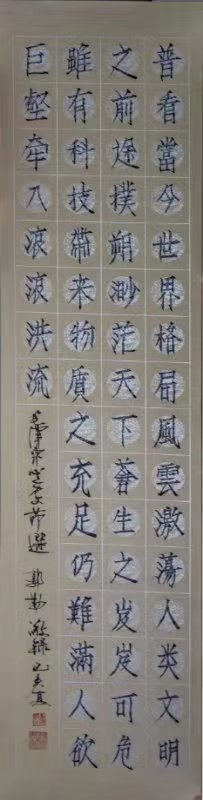 普看當今世界格局風雲激蕩人类文明
之前途撲朔渺茫天下蒼生之岌岌可危
雖有科技帶来物質之充足仍難滿人欲
巨壑牵入滚滚洪流
節選 敬録 己亥夏